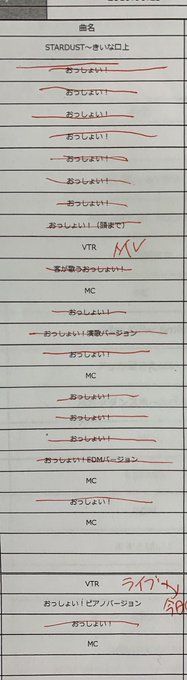 曲名
STARDUST〜きいな口上
おっしょい！
おっしょい！
おっしょい！
おっしょい！
おっしょい！
おっしょい！
おっしょい！
おっしょい！（頭まで）
VTR MV
客が歌うおっしょい！
MC
おっしょい！
おっしょい！演歌バージョン
おっしょい！
MC
おっしょい！
おっしょい！
おっしょい！
おっしょい！EDMバージョン
MC
おっしょい！
MC
VTR ライブ
おっしょい！ピアノバージョン 今日
おっしょい！
MC